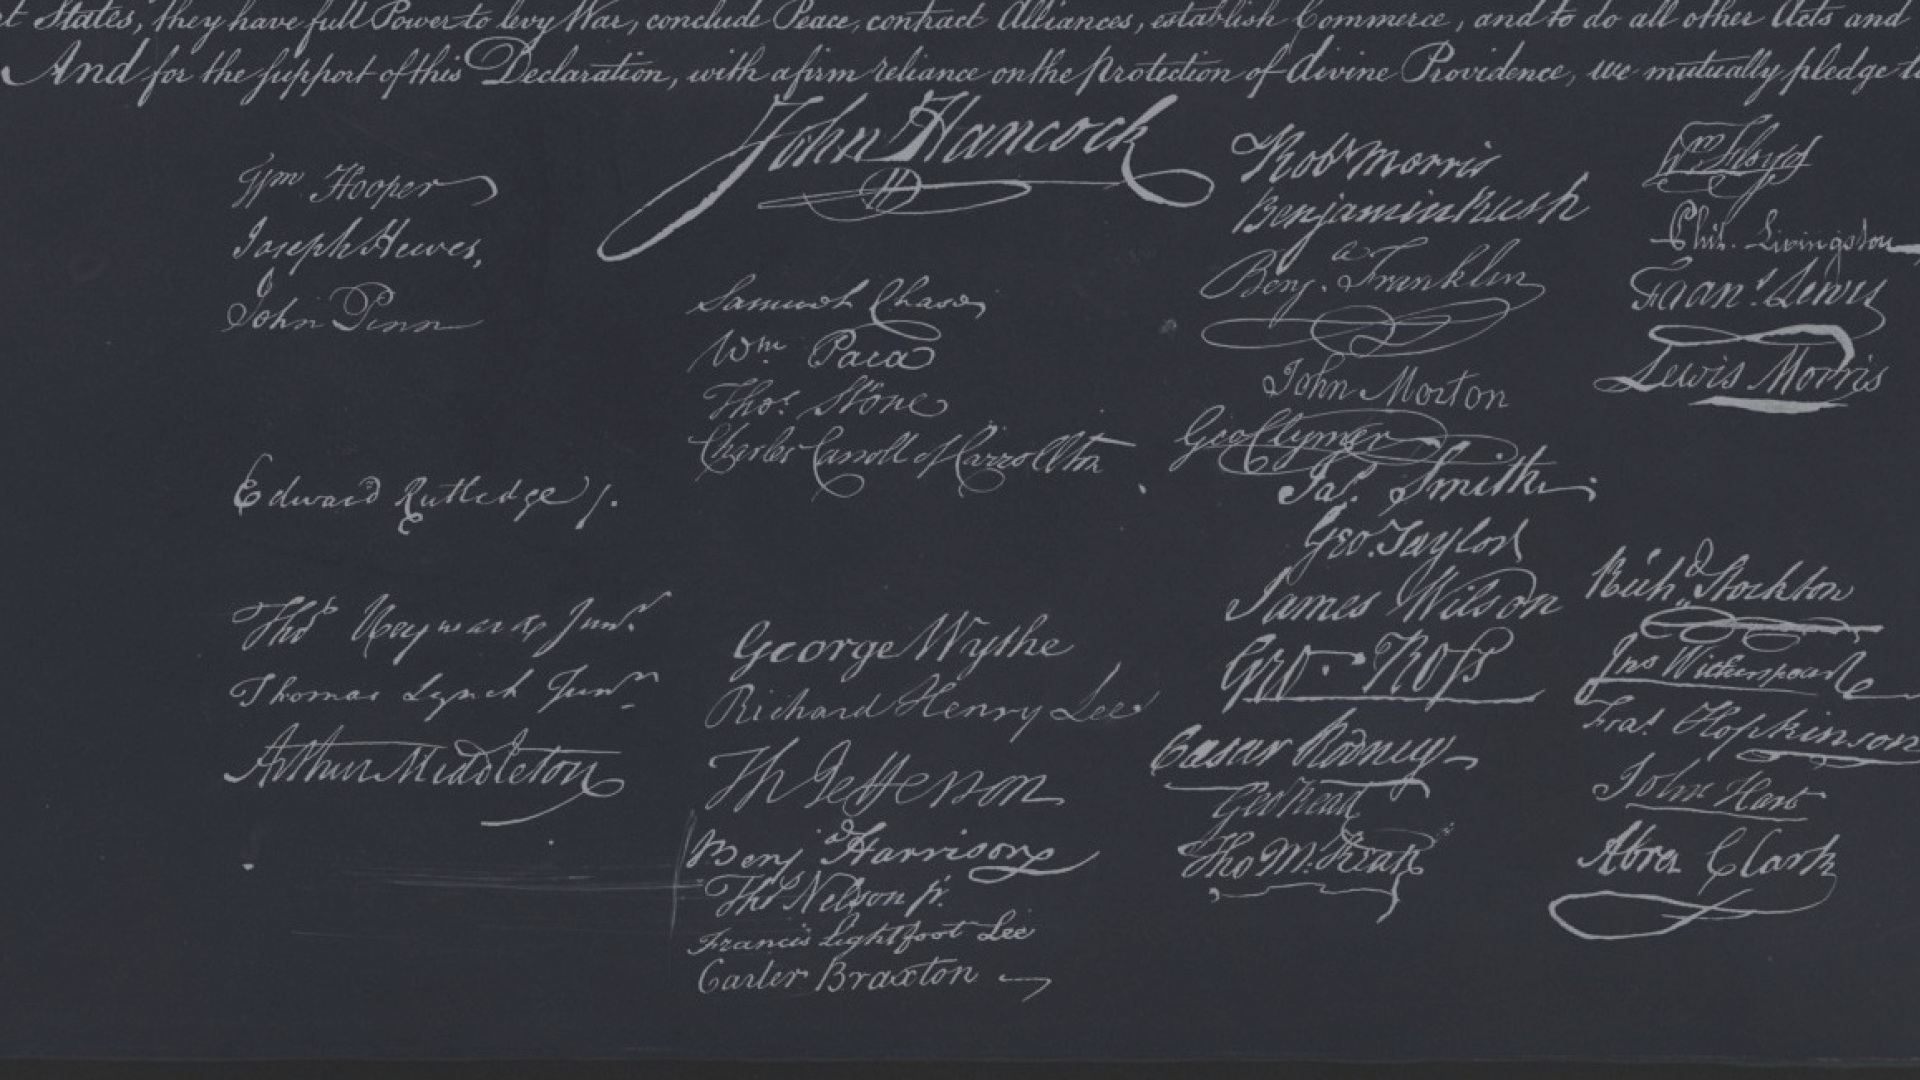 t States, they have full Power to levy War, conclude Peace, contract Alliances, establish Commerce, and to do all other Acts and
And for the support of this Declaration, with a firm reliance on the Protection of divine Providence, we mutually pledge to
John Hancock
Wm Hooper
Joseph Hewes,
John Penn
Edward Rutledge /.
Thos Heyward Junr.
Thomas Lynch Junr
Arthur Middleton
Samuel Chase
Wm Paca
Thos. Stone
Charles Carroll of Carrollton
George Wythe
Richard Henry Lee
Th Jefferson
Benj Harrison
Ths Nelson jr.
Francis Lightfoot Lee
Carter Braxton
Robt Morris
Benjamin Rush
Benja. Franklin
John Morton
Geo Clymer
Jas. Smith.
Geo. Taylor
James Wilson
Geo. Ross
Caesar Rodney
Geo Read
Tho M:Kean
Wm Floyd
Phil. Livingston
Frans. Lewis
Lewis Morris
Richd. Stockton
Jno Witherspoon
Fras. Hopkinson
John Hart
Abra Clark